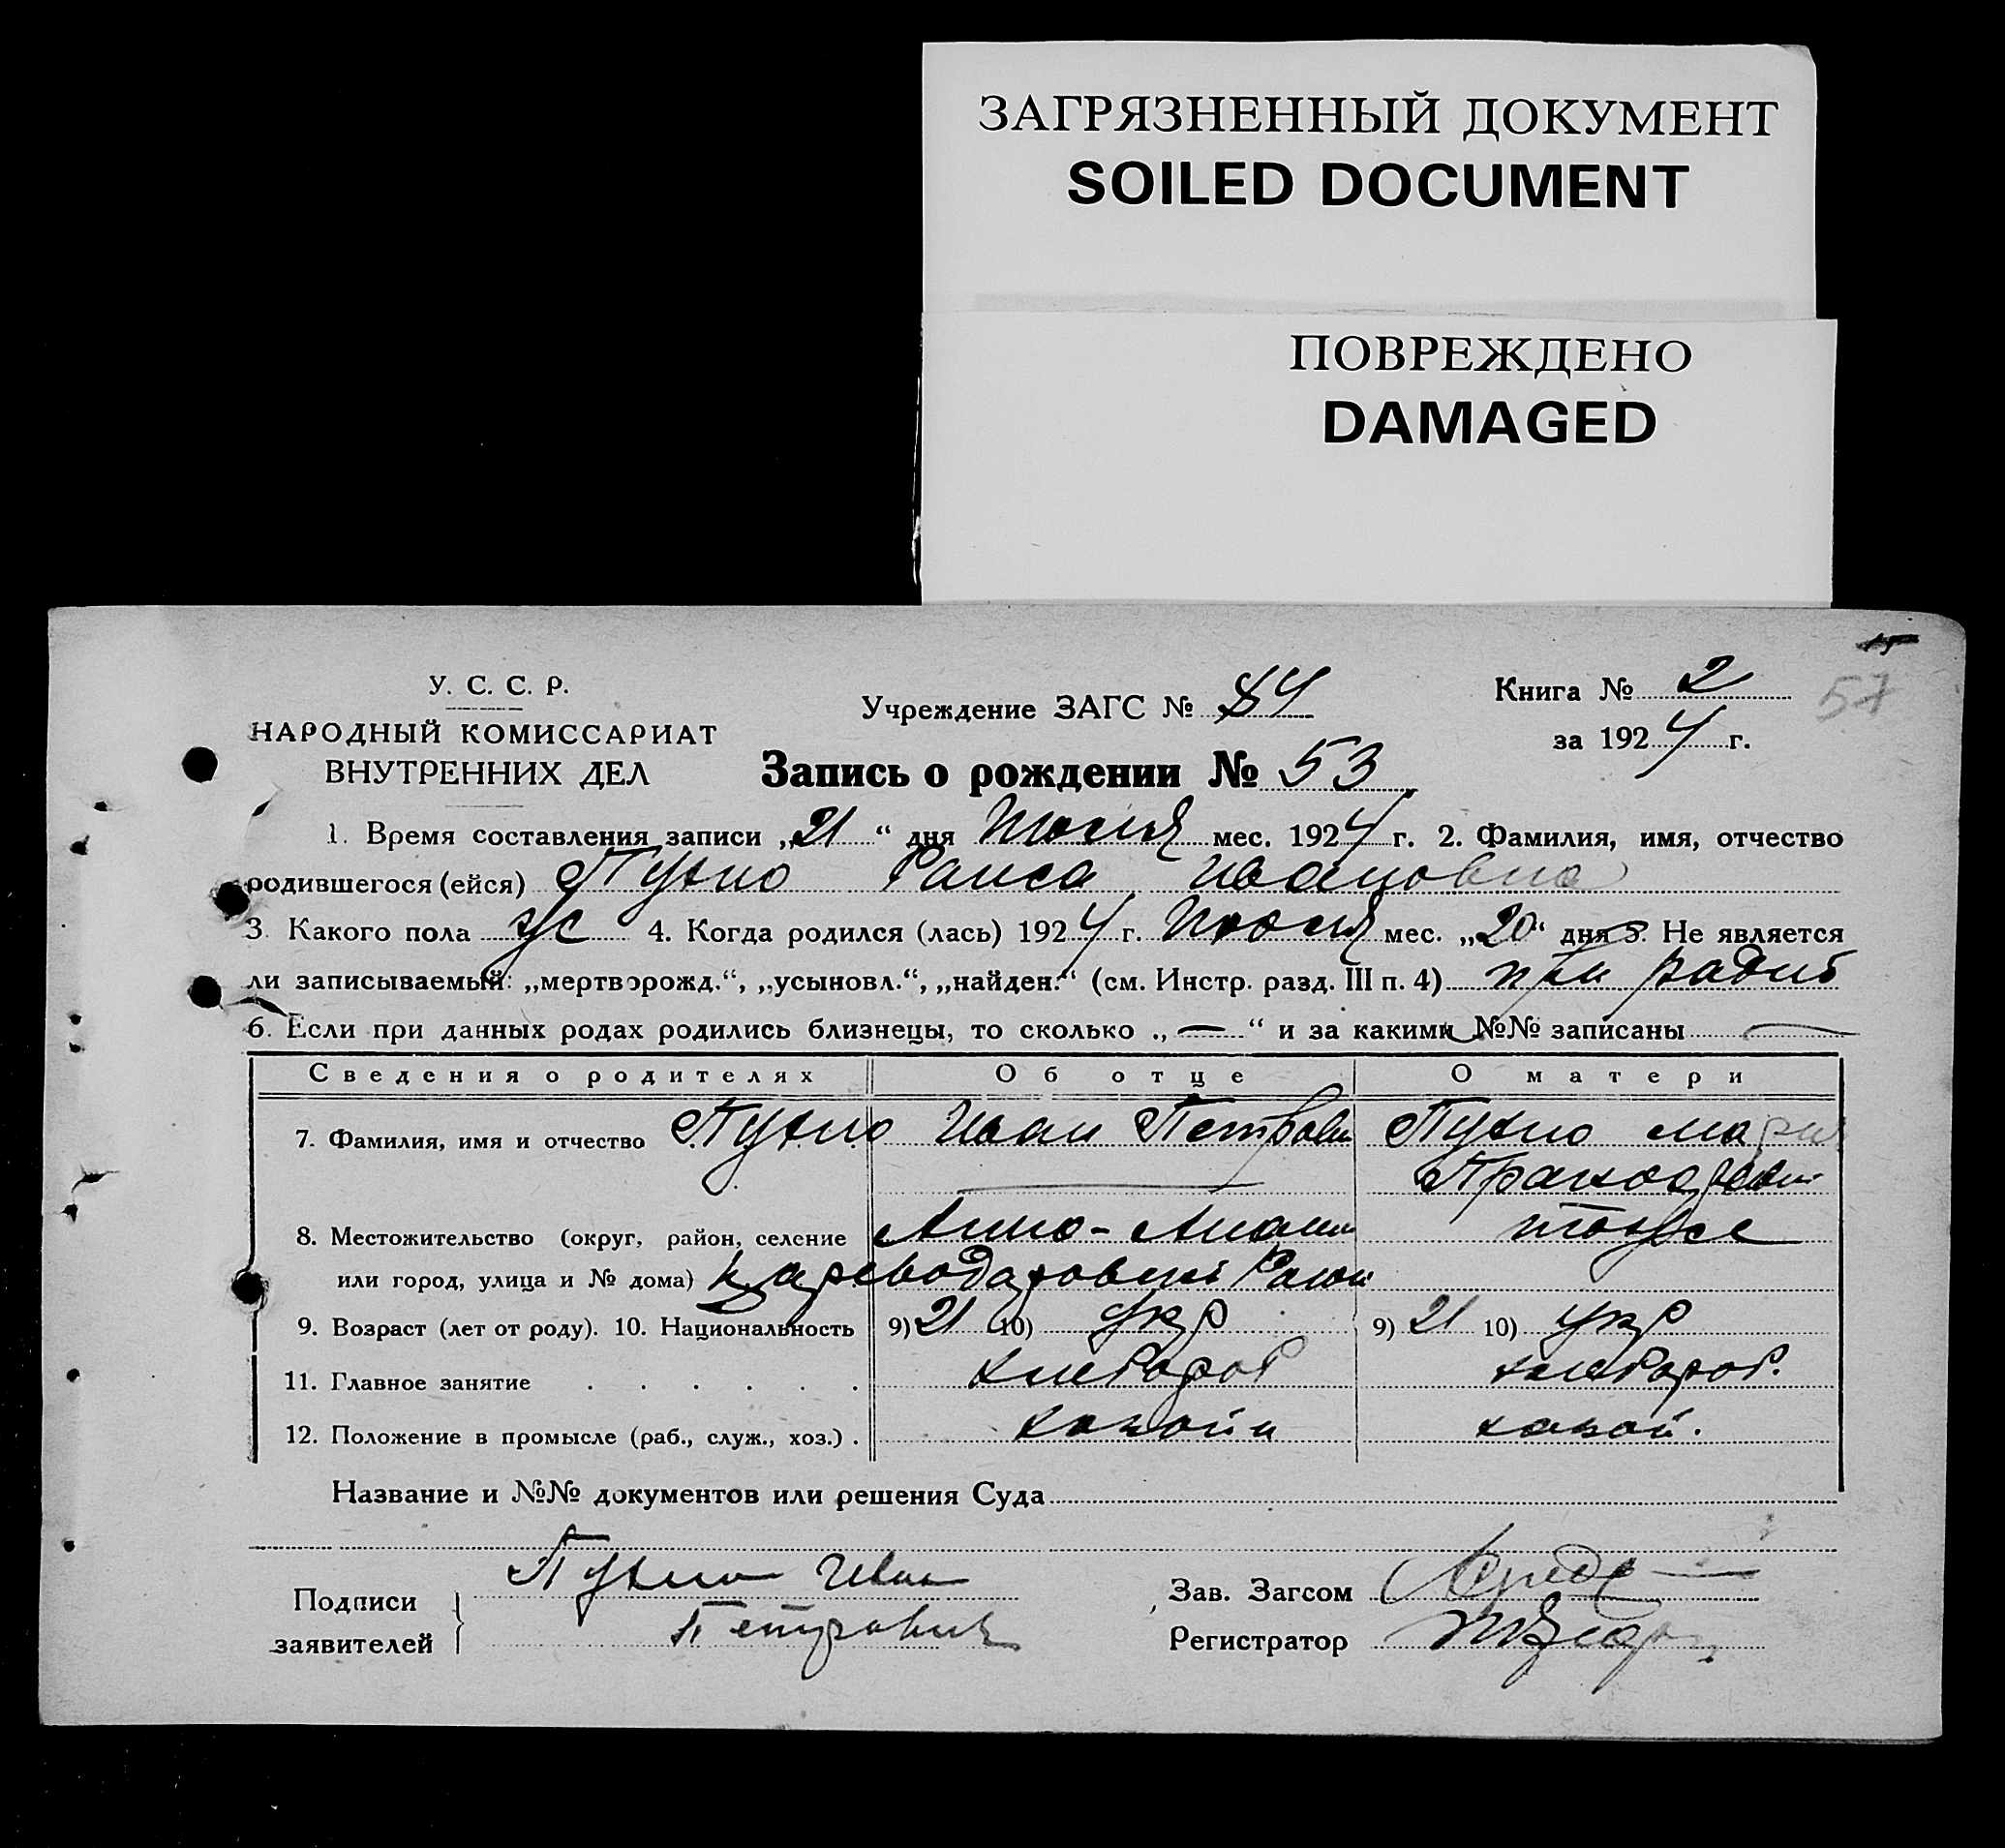 ЗАГРЯЗНЕННЫЙ ДОКУМЕНТ
SOILED DOCUMENT
ПОВРЕЖДЕНО
DAMAGED
У. С. С. Р.
НАРОДНЫЙ КОМИССАРИАТ
ВНУТРЕННИХ ДЕЛ
Учреждение ЗАГС № 84
Книга № 2
57
за 1924 г.
Запись о рождении № 53
1. Время составления записи „21“ дня Июля мес. 1924 г. 2. Фамилия, имя, отчество
родившегося (ейся) Раиса Ивановна
3. Какого пола ж 4. Когда родился (лась) 1924 г. Июля мес. „20“ дня 5. Не является
ли записываемый: „мертворожд.“, „усыновл.“, „найден.“ (см. Инстр. разд. III п. 4) при
6. Если при данных родах родились близнецы, то сколько „—“ и за какими №№ записаны —
Сведения о родителях Об отце О матери
7. Фамилия, имя и отчество Иван Петрович Мария
8. Местожительство (округ, район, селение Анно- тоже
или город, улица и № дома)
9. Возраст (лет от роду). 10. Национальность 9) 21 10) укр 9) 21 10) укр
11. Главное занятие . . . . . . хлебороб хлебороб.
12. Положение в промысле (раб., служ., хоз.) .
Название и №№ документов или решения Суда
Подписи Иван Зав. Загсом
заявителей Петрович Регистратор